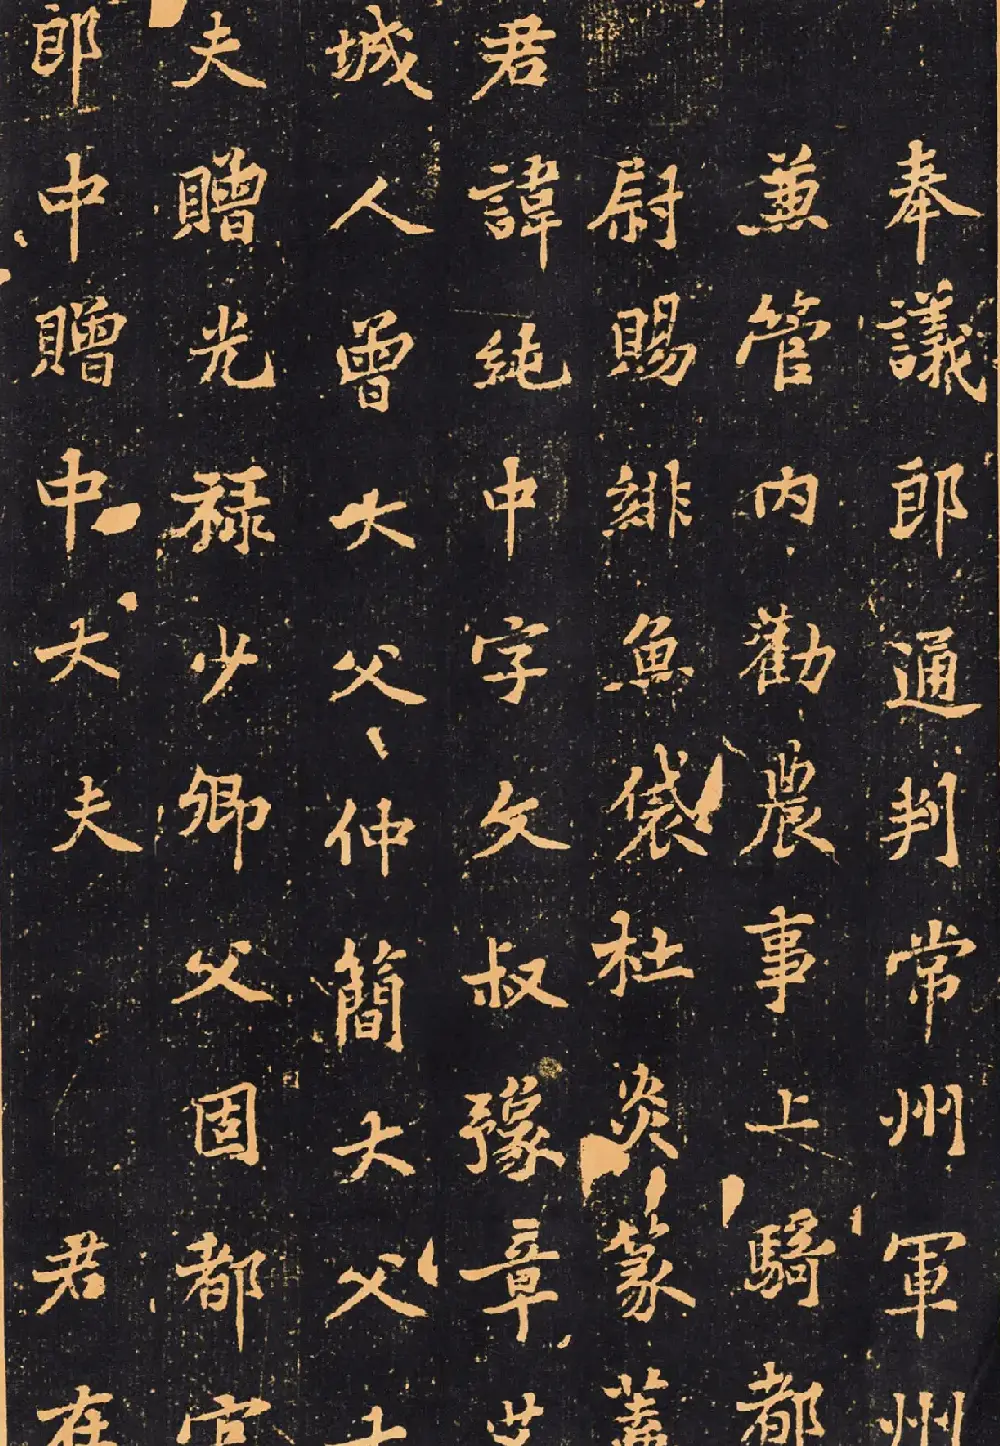 奉議郎通判常州軍州
兼管内勸農事上騎都
尉賜緋魚袋杜炎篆蓋
君諱純中字文叔豫章世
城人曾大父仲簡大父士
夫贈光禄少卿父固都官
郎中贈中大夫君在